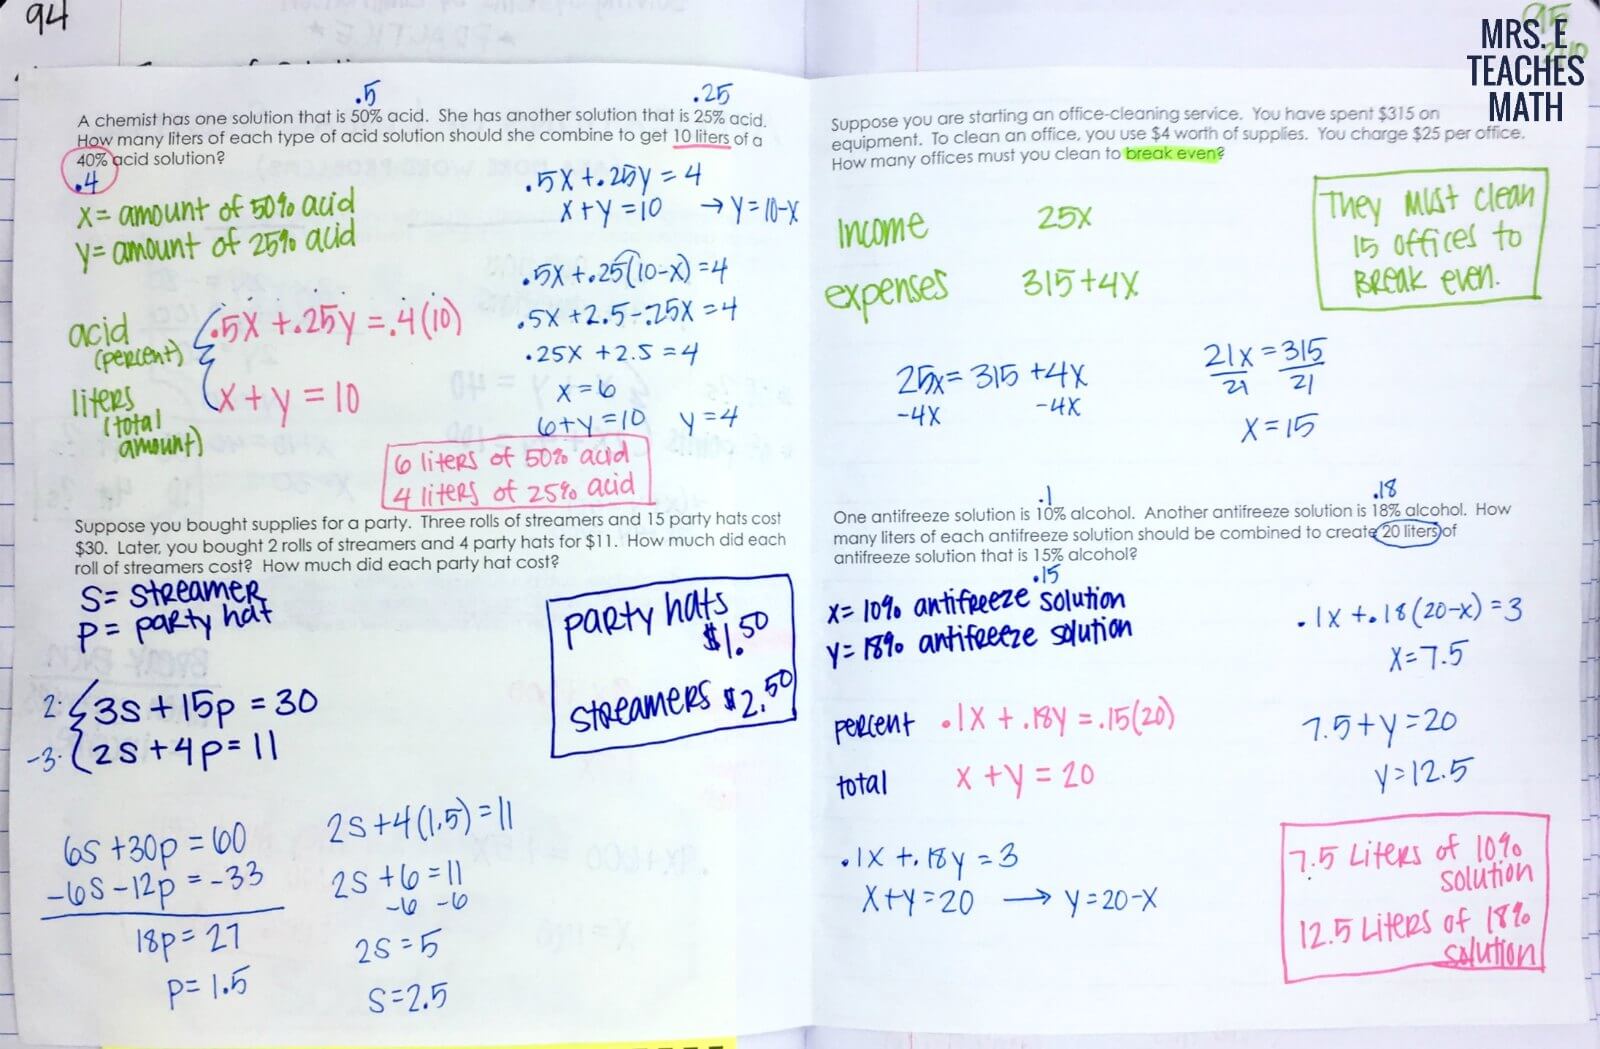 94
95
MRS. E
TEACHES
MATH
.5
.25
A chemist has one solution that is 50% acid. She has another solution that is 25% acid.
How many liters of each type of acid solution should she combine to get 10 liters of a
40% acid solution?
.4
x = amount of 50% acid
y = amount of 25% acid
acid
(percent)
.5x + .25y = .4(10)
liters
(total
amount)
x + y = 10
.5x + .25y = 4
x + y = 10 → y = 10-x
.5x + .25(10-x) = 4
.5x + 2.5 - .25x = 4
.25x + 2.5 = 4
x = 6
6 + y = 10 y = 4
6 liters of 50% acid
4 liters of 25% acid
Suppose you bought supplies for a party. Three rolls of streamers and 15 party hats cost
$30. Later, you bought 2 rolls of streamers and 4 party hats for $11. How much did each
roll of streamers cost? How much did each party hat cost?
S = streamer
P = party hat
2· 3s + 15p = 30
-3· 2s + 4p = 11
6s + 30p = 60
-6s - 12p = -33
18p = 27
p = 1.5
2s + 4(1.5) = 11
2s + 6 = 11
-6 -6
2s = 5
s = 2.5
party hats
$1.50
streamers $2.50
Suppose you are starting an office-cleaning service. You have spent $315 on
equipment. To clean an office, you use $4 worth of supplies. You charge $25 per office.
How many offices must you clean to break even?
Income 25x
expenses 315 + 4x
They must clean
15 offices to
break even.
25x = 315 + 4x
-4x -4x
21x = 315
21 21
x = 15
.1
.18
One antifreeze solution is 10% alcohol. Another antifreeze solution is 18% alcohol. How
many liters of each antifreeze solution should be combined to create 20 liters of
antifreeze solution that is 15% alcohol?
.15
x = 10% antifreeze solution
y = 18% antifreeze solution
percent .1x + .18y = .15(20)
total x + y = 20
.1x + .18y = 3
x + y = 20 → y = 20-x
.1x + .18(20-x) = 3
x = 7.5
7.5 + y = 20
y = 12.5
7.5 Liters of 10%
solution
12.5 Liters of 18%
solution